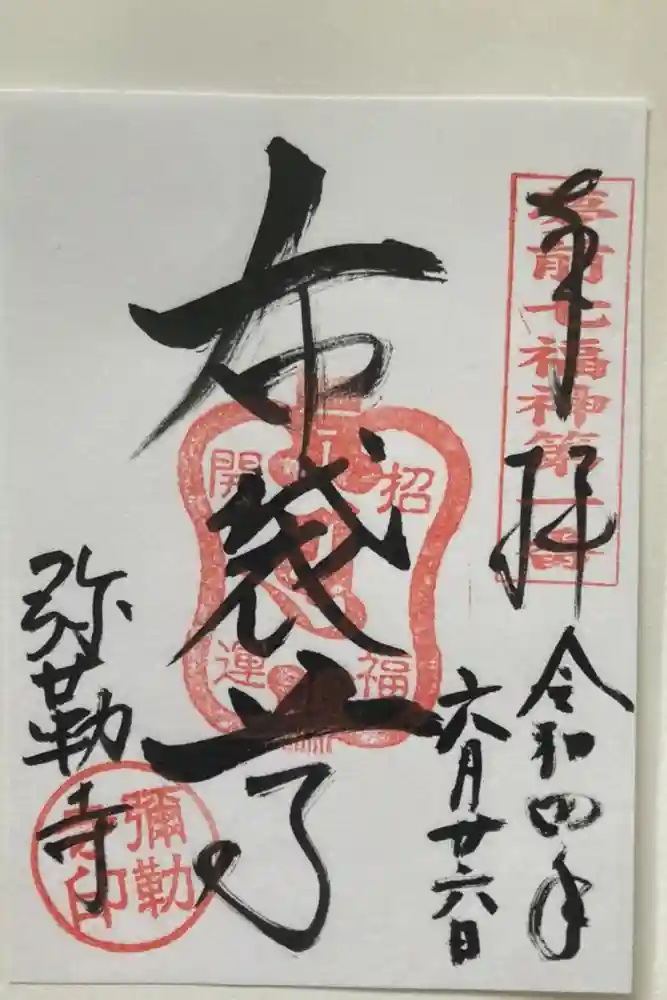 夢前七福神第一番
奉拝
令和四年
六月廿六日
布袋尊
招福
開運
弥勒寺
彌勒
寺印